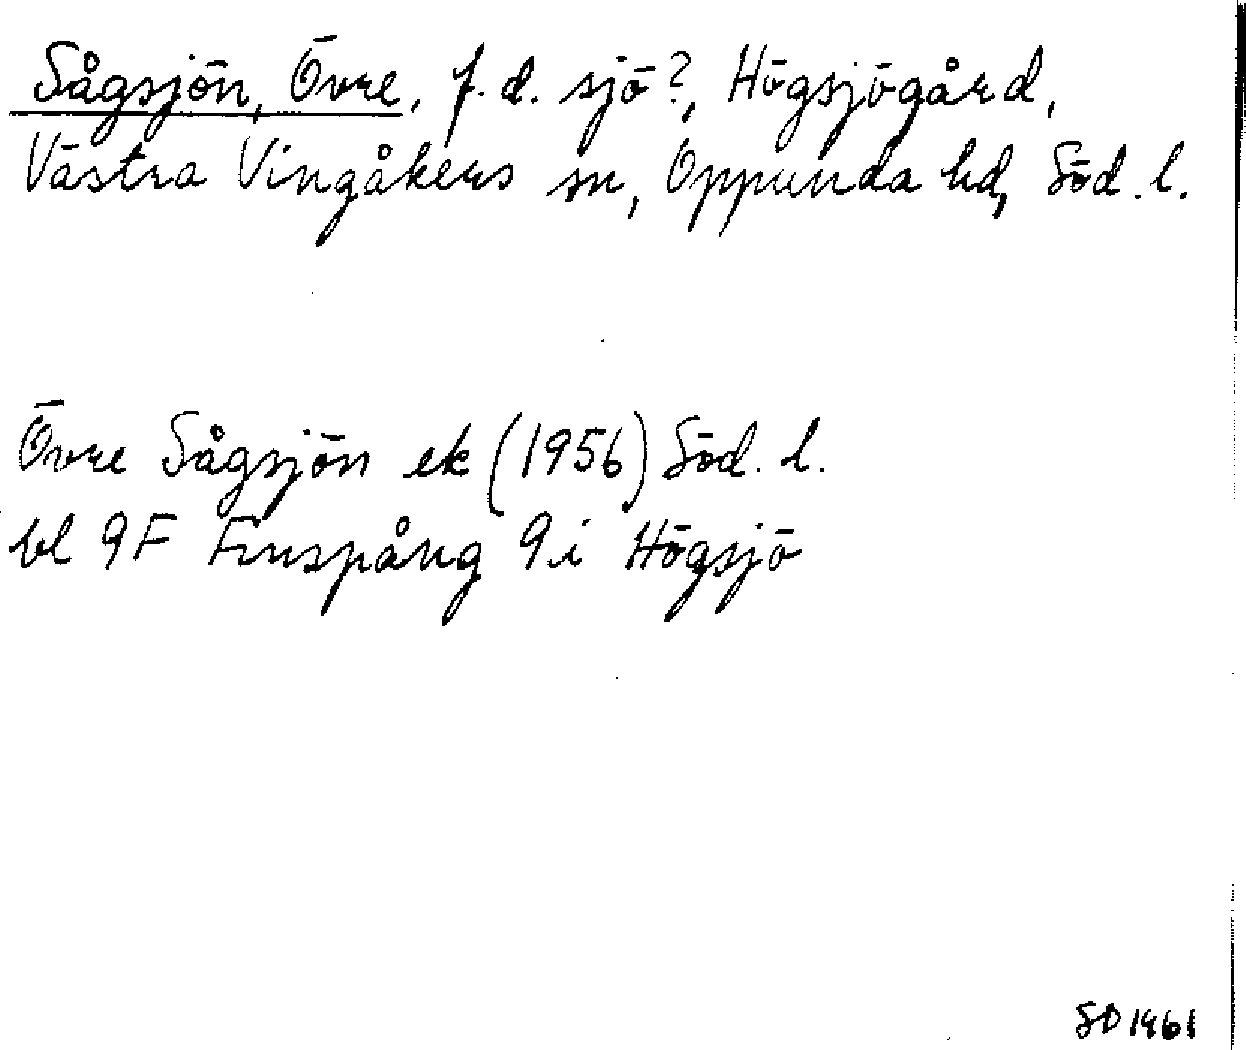 Sågsjön, Övre, f.d. sjö?, Högsjögård,
Västra Vingåkers sn, Oppunda hd, Söd. l.
Övre Sågsjön ek (1956) Söd. l.
bl 9F Finspång 9i Högsjö
SD 1961